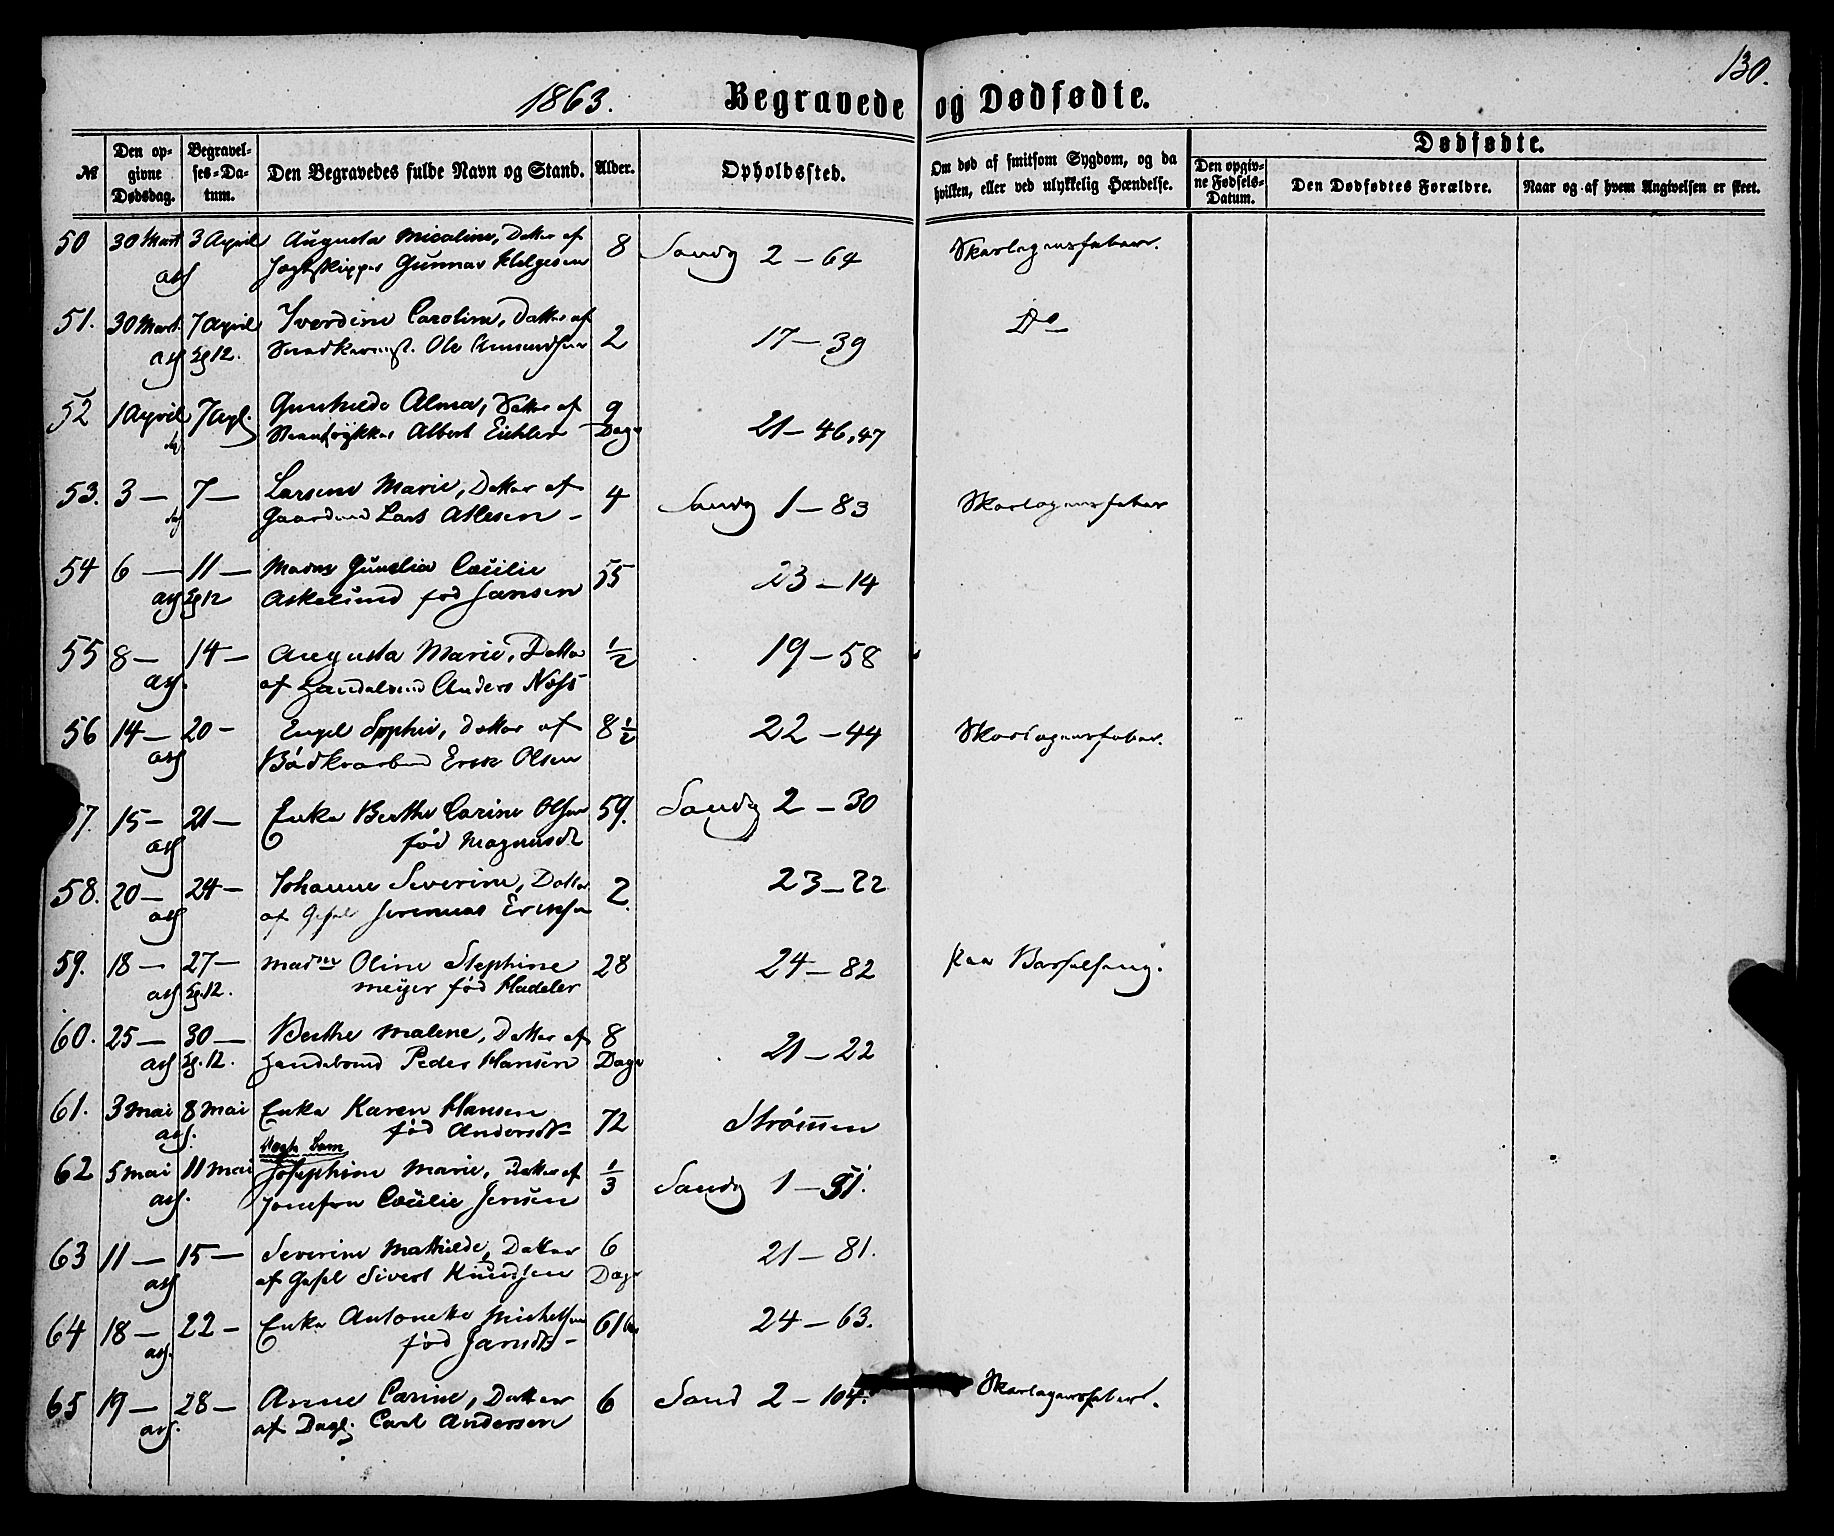 130.
1863. Begravede og Dødfødte.
№
Den opgivne Dødsdag.
Begravelses-Datum.
Den Begravedes fulde Navn og Stand.
Alder.
Opholdssted.
Om død af smitsom Sygdom, og da hvilken, eller ved ulykkelig Hændelse.
Dødfødte.
Den opgivne Fødsels-Datum.
Den Dødfødtes Forældre.
Naar og af hvem Angivelsen er skeet.
50 30 Mart 3 April Augusta Micaline, Datter af 8 Sandv 2 – 64 Skarlagensfeber.
Jagtskipper Gunnar Helgesen
51. 30 Mart. 7 April Iverdine Caroline, Datter af 2 17 – 39 Do
Ole Amundsen
52 1 April 7 Apl. Gunhilde Alma, Datter af 9 Dage 21 – 46,47
Albert Eichler
53. 3 – 7 – Larsine Marie, Datter af 4 Sandv 1 – 83 Skarlagensfeber
Gaardmd Lars Atlesen –
54 6 – 11 – Madme Cecilie 55 23 – 14
Askelund fød Jansen
55 8 – 14 – Augusta Marie, Datter 1/2 19 – 58
af Handelsmd Anders
56 14 – 20 – Engel Sophie, Datter af 8 1/2 22 – 44 Skarlagensfeber.
Bødkerarbmd Erik Olsen
57. 15 – 21 – Enke Berthe Carine Olsen 59. Sandv 2 – 30
fød Magnusdt
58. 20 – 24 – Johanne Severine, Datter 2. 23 – 22
af Gesel Jeremias Eriksen
59. 18 – 27 – Madme Oline Stephine 28 24 – 82 paa Barselseng.
Meyer fød Hadeler
60. 25 – 30 – Berthe Malene, Datter af 8 Dage 21 – 22
Handelsmd Peder Hansen
61. 3 Mai 8 Mai Enke Karen Hansen 72 Strømmen
fød Andersdt
Uægte Barn
62 5 Mai 11 Mai Josephine Marie, Datter af 1/3 Sandv 1 – 51.
Jomfru Cecilie Jensen
63 11 – 15 – Severine Mathilde, Datter 6 Dage 21 – 81.
af Gesel Sivert Knudsen
64 18 – 22 – Enke Antonette Michelsen 61 24 – 63.
fød
65 19 – 28 – Anne Carine, Datter 6 Sand 2 – 104. Skarlagensfeber.
af Dagl. Carl Andersen